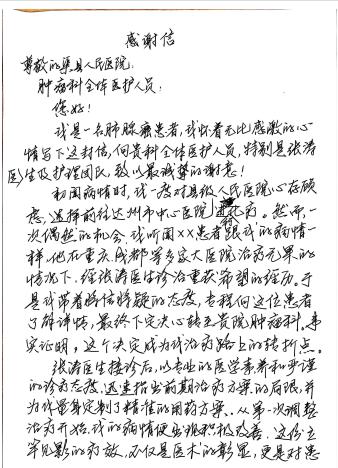 感谢信
尊敬的渠县人民医院:
肿瘤科全体医护人员:
您好!
我是一名肺腺癌患者,我怀着无比感激的心
情写下这封信,向贵科全体医护人员,特别是张涛
医生及护理团队,致以最诚挚的谢意!
初闻病情时,我一度对县级人民医院心存顾
虑,选择前往达州市中心医院治疗。然而,一
次偶然的机会,我听闻××患者跟我的病情一
样,他在重庆、成都等多家大医院治疗无果的
情况下,经张涛医生诊治重获希望的经历。于
是我带着将信将疑的态度,专程向这位患者
了解详情,最终下定决心转至贵院肿瘤科。事
实证明,这个决定成为我治疗路上的转折点。
张涛医生接诊后,以专业的医学素养和严谨
的诊疗态度,迅速指出前期治疗方案的局限,并
为我量身定制了精准的用药方案。从第一次调整
治疗开始,我的病情便出现积极改善,这份立
竿见影的疗效,不仅是医术的彰显,更是对患